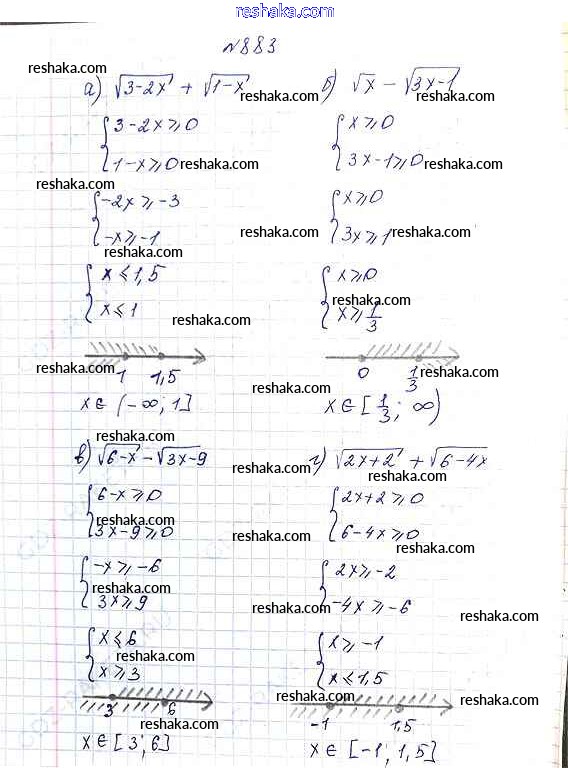 reshaka.com
№883
reshaka.com
а) √3-2x + √1-x
reshaka.com
б) √x - √3x-1
reshaka.com
{3-2x ⩾ 0
1-x ⩾ 0
reshaka.com
{x ⩾ 0
3x-1 ⩾ 0
reshaka.com
reshaka.com
{-2x ⩾ -3
-x ⩾ -1
reshaka.com
{x ⩾ 0
3x ⩾ 1
reshaka.com
reshaka.com
{x ⩽ 1,5
x ⩽ 1
reshaka.com
{x ⩾ 0
reshaka.com
x ⩾ 1/3
1 1,5
reshaka.com
0 1/3
reshaka.com
x ∈ (-∞; 1]
reshaka.com
x ∈ [1/3; ∞)
reshaka.com
в) √6-x - √3x-9
reshaka.com
г) √2x+2 + √6-4x
reshaka.com
{6-x ⩾ 0
reshaka.com
3x-9 ⩾ 0
reshaka.com
{2x+2 ⩾ 0
6-4x ⩾ 0
reshaka.com
{-x ⩾ -6
reshaka.com
3x ⩾ 9
{2x ⩾ -2
-4x ⩾ -6
reshaka.com
reshaka.com
{x ⩽ 6
reshaka.com
x ⩾ 3
{x ⩾ -1
x ⩽ 1,5
reshaka.com
3 6
reshaka.com
reshaka.com
-1 1,5
reshaka.com
x ∈ [3; 6]
x ∈ [-1; 1,5]
reshaka.com